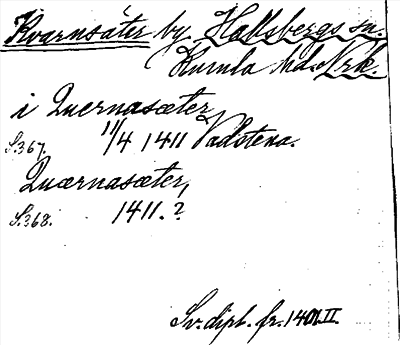 Kvarnsäter by, Hallsbergs sn.
Kumla hd. Nrk.
i Quernasæter
S. 367. 11/4 1411 Vadstena.
Quærnasæter,
S. 368. 1411.?
Sv. dipl. fr. 1401. II.